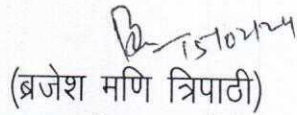 15/02/24
(ब्रजेश मणि त्रिपाठी)